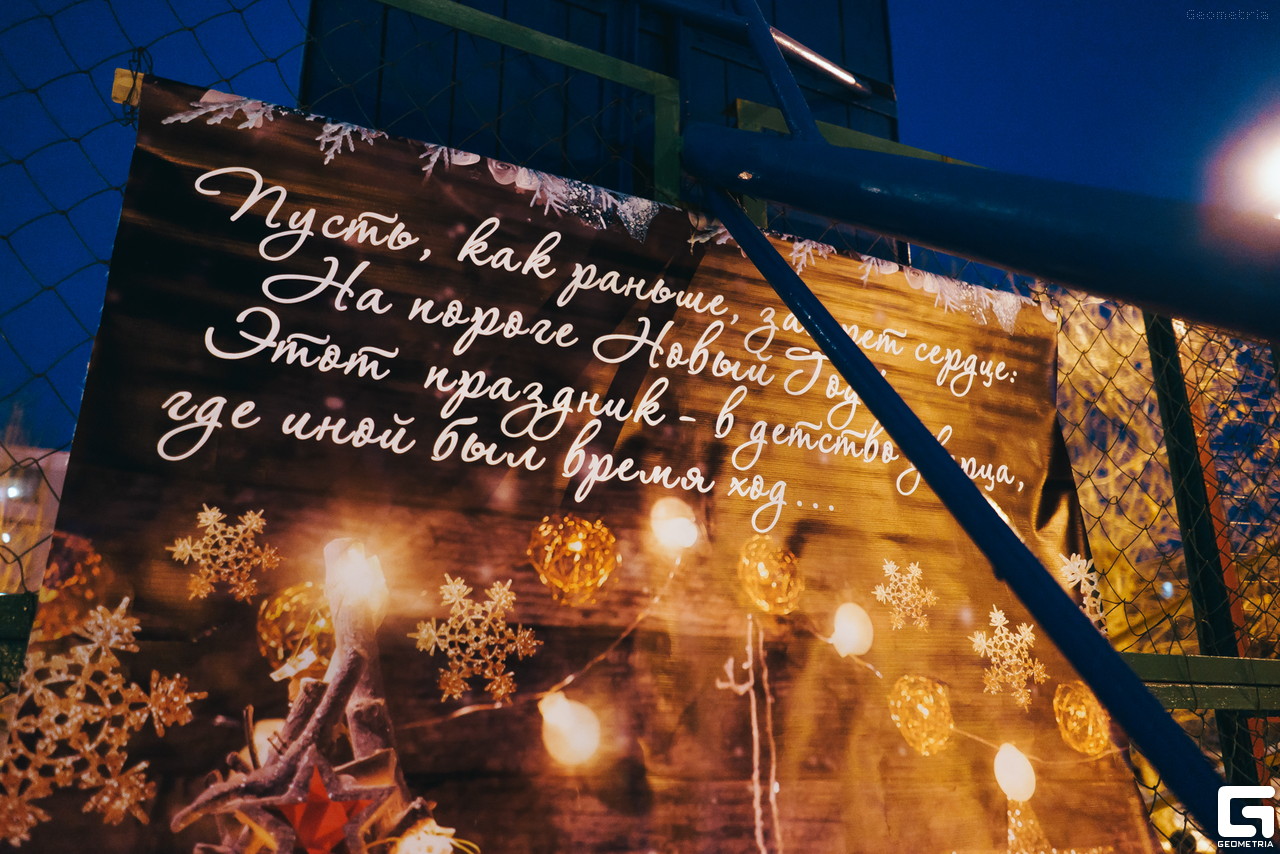 Geometria
Пусть, как раньше, замрет сердце:
На пороге Новый Год!
Этот праздник - в детство дверца,
где иной был время ход...
GEOMETRIA